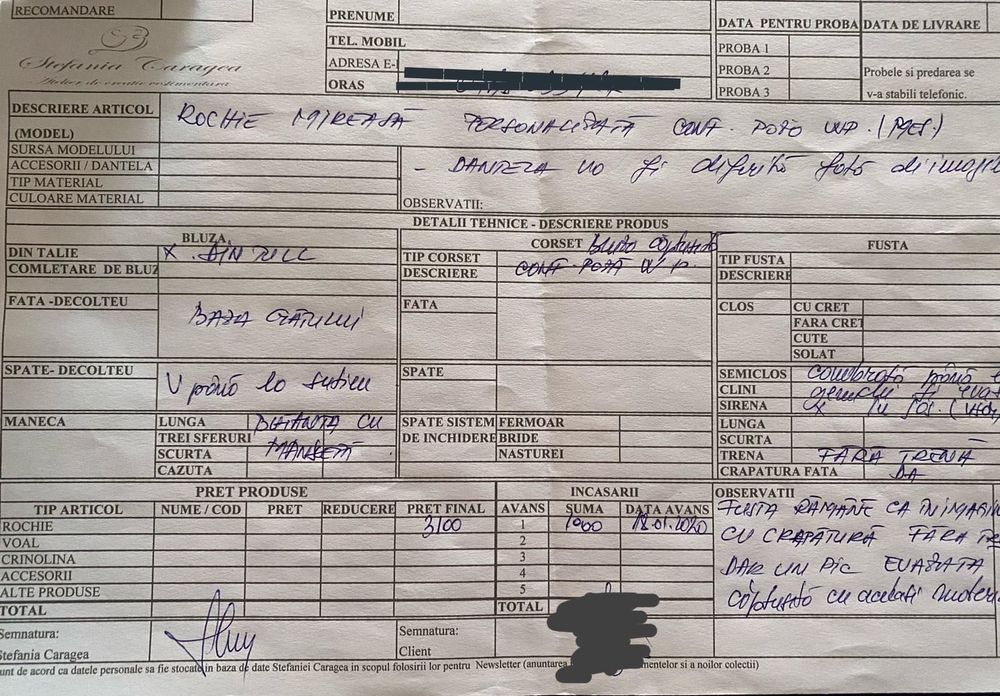 RECOMANDARE
PRENUME
TEL. MOBIL
ADRESA E-
ORAS
DATA PENTRU PROBA DATA DE LIVRARE
PROBA 1
PROBA 2
PROBA 3
Probele si predarea se
v-a stabili telefonic.
Stefania Caragea
Atelier de creatie vestimentara
DESCRIERE ARTICOL
(MODEL)
ROCHIE MIREASĂ PERSONALIZATĂ CONF. POZĂ WP. (MES.)
SURSA MODELULUI
ACCESORII / DANTELA
TIP MATERIAL
CULOARE MATERIAL
- DANTELA va fi diferită față de imagin
OBSERVATII:
DETALII TEHNICE - DESCRIERE PRODUS
BLUZA
DIN TALIE X DIN TULL
COMLETARE DE BLUZ
FATA -DECOLTEU BAZA GÂTULUI
SPATE- DECOLTEU V până la sutien
MANECA
LUNGA BUFANTĂ CU
TREI SFERURI MANȘETĂ
SCURTA
CAZUTA
CORSET Bluza căptușită
TIP CORSET CONF POZĂ WP.
DESCRIERE
FATA
SPATE
SPATE SISTEM DE INCHIDERE
FERMOAR
BRIDE
NASTUREI
FUSTA
TIP FUSTA
DESCRIERE
CLOS
CU CRET
FARA CRET
CUTE
SOLAT
SEMICLOS cambrată până
CLINI genunchi și evaz
SIRENA X în jos.
LUNGA
SCURTA
TRENA FĂRĂ TRENĂ
CRAPATURA FATA DA
PRET PRODUSE
TIP ARTICOL NUME / COD PRET REDUCERE PRET FINAL
ROCHIE 3100
VOAL
CRINOLINA
ACCESORII
ALTE PRODUSE
TOTAL
INCASARII
AVANS SUMA DATA AVANS
1 1000 18.01.2020
2
3
4
5
TOTAL
OBSERVATII
FUSTA RĂMÂNE CA ÎN IMAGIN
CU CRĂPĂTURĂ FĂRĂ TRE
DAR UN PIC EVAZATĂ
căptușită cu același materi
Semnatura:
Stefania Caragea
Semnatura:
Client
unt de acord ca datele personale sa fie stocate in baza de date Stefaniei Caragea in scopul folosirii lor pentru Newsletter (anuntarea mentelor si a noilor colectii)